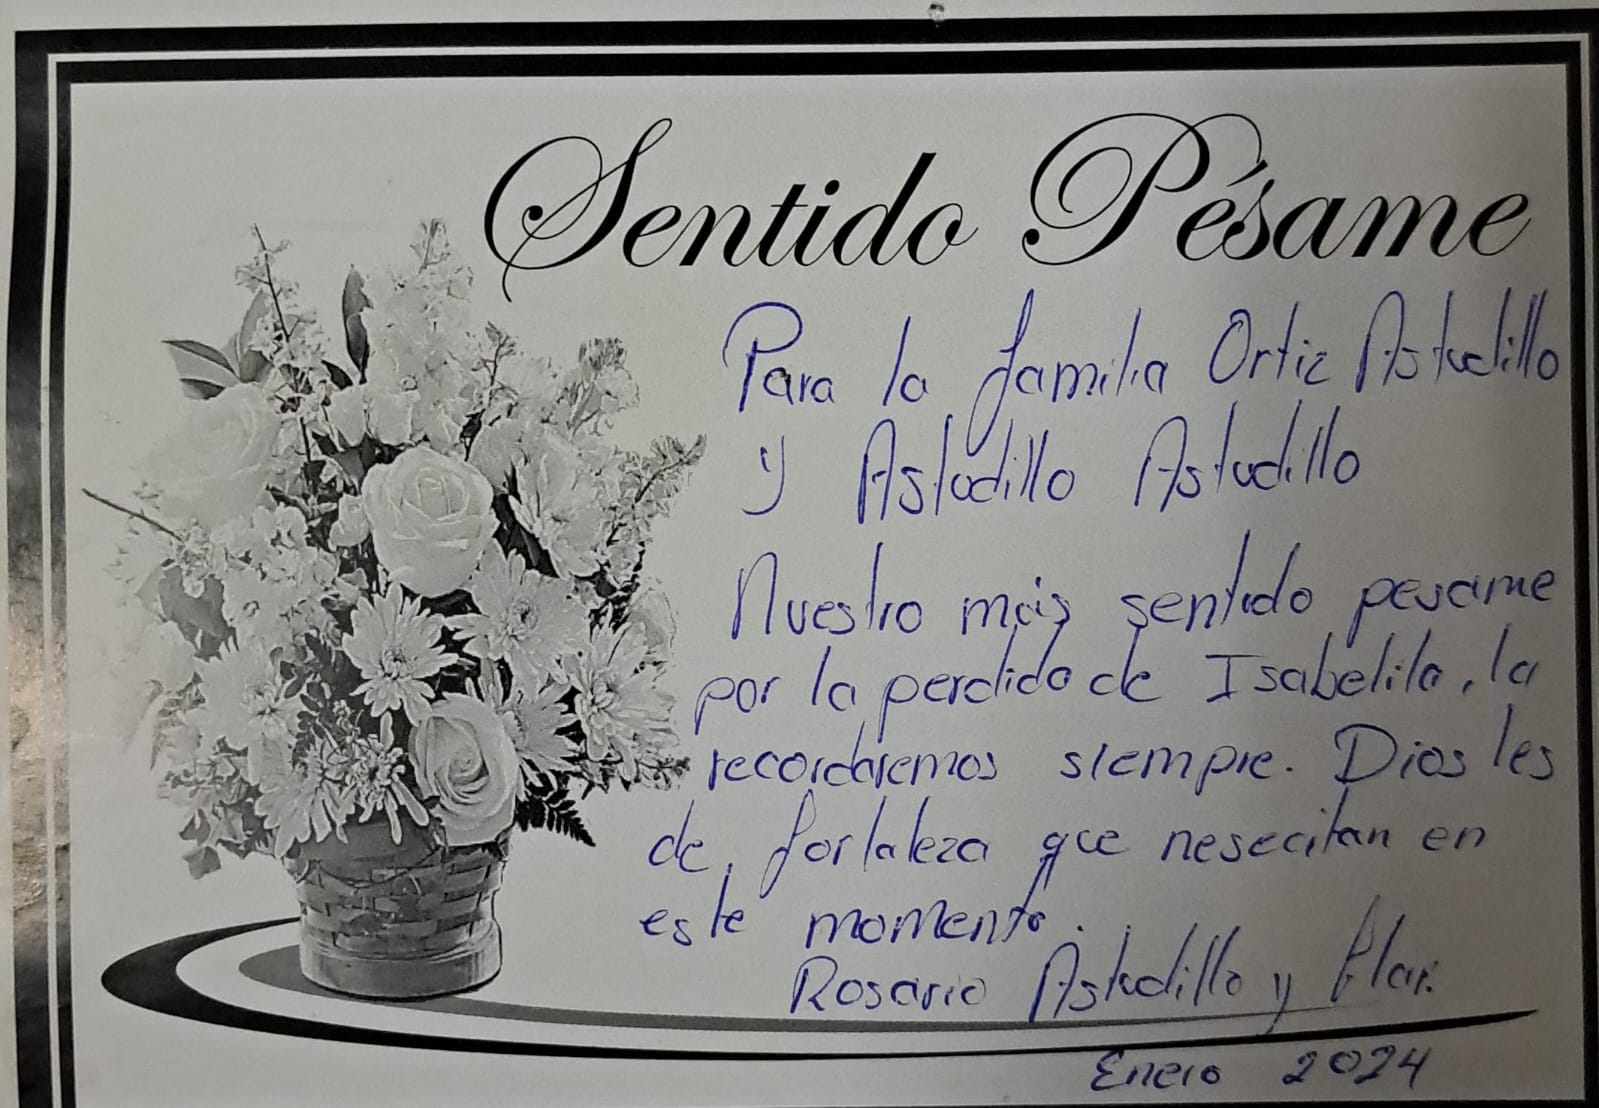 Sentido Pésame
Para la familia Ortiz Astudillo
y Astudillo Astudillo
Nuestro más sentido pesame
por la perdida de Isabelita, la
recordaremos siempre. Dios les
de, fortaleza que nesecitan en
este momento.
Rosario Astudillo y
Enero 2024